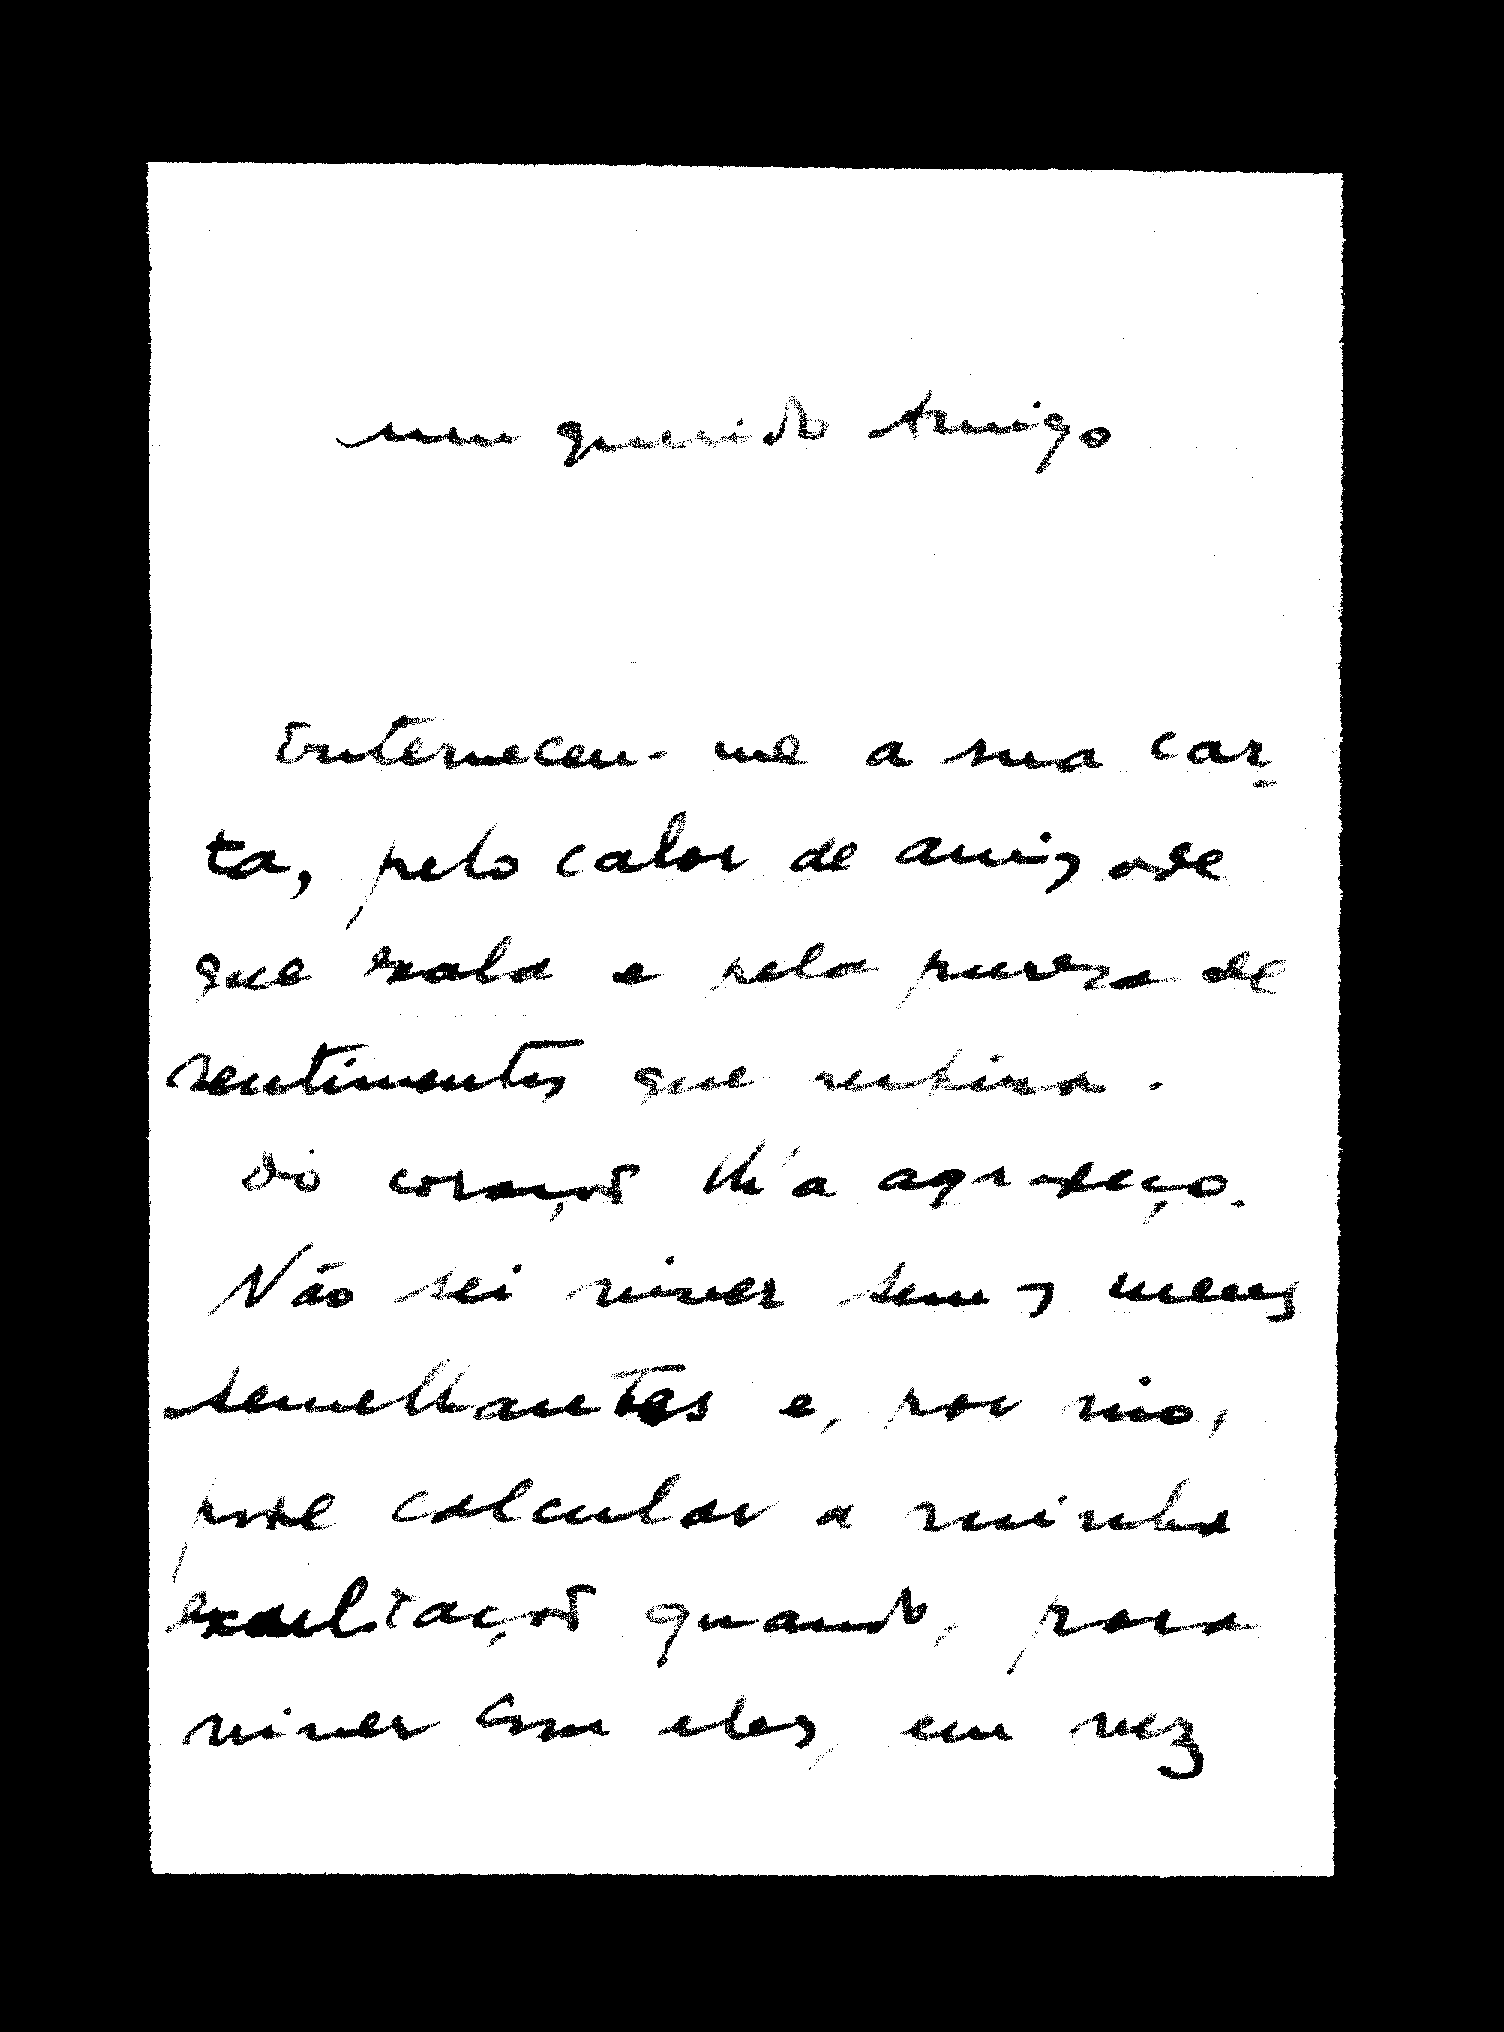 meu querido Amigo
Enterneceu-me a sua car-
ta, pelo calor de amizade
que exala e pela pureza de
sentimentos que respira.
Do coração lh'a agradeço.
Não sei viver sem os meus
semelhantes e, por isso,
pode calcular a minha
exaltação quando, para
viver com eles, em vez